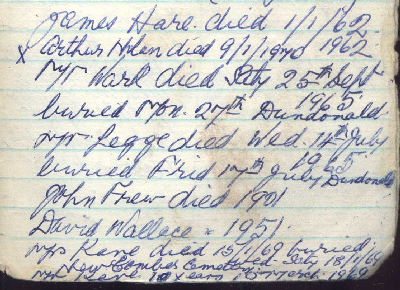 James Hare. died 1/1/62
x Arthur Nolan died 9/1/1970 1962
Mr Wark died Saty 25th Sept
1965
buried Mon. 27th Dundonald
Mr Legge died Wed. 14th July
1965
buried Frid 17th July Dundonald
John Frew died 1901
David Wallace " 1951
Mrs Kane died 15/1/69 buried
New Comber Cemetery Saty 18/1/69
Mr Kane 10 years 15 March 1969